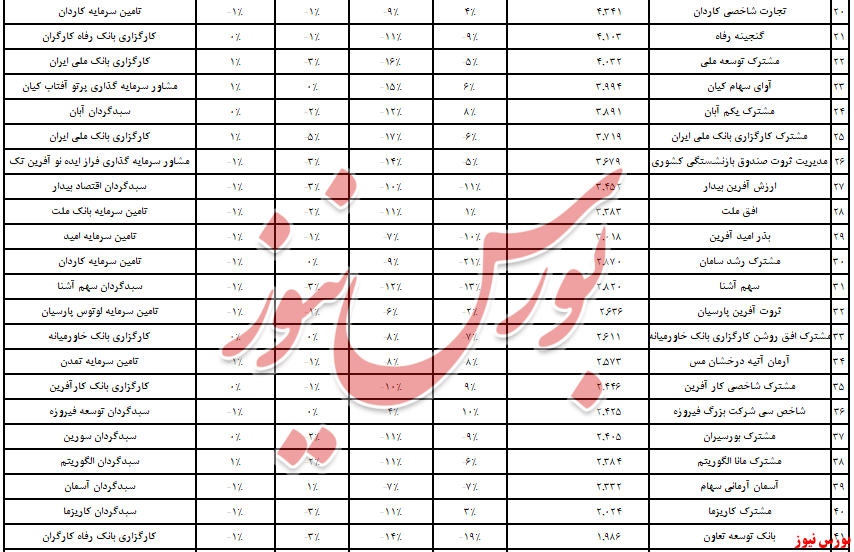 ۲۰ تجارت شاخصی کاردان ۴.۳۴۱ ۴٪ -۹٪ -۱٪ -۱٪ تامین سرمایه کاردان
۲۱ گنجینه رفاه ۴.۱۰۳ -۹٪ -۱۱٪ -۱٪ ۰٪ کارگزاری بانک رفاه کارگران
۲۲ مشترک توسعه ملی ۴.۰۳۲ -۵٪ -۱۶٪ -۳٪ ۱٪ کارگزاری بانک ملی ایران
۲۳ آوای سهام کیان ۳.۹۹۴ ۶٪ -۱۵٪ ۰٪ ۱٪ مشاور سرمایه گذاری پرتو آفتاب کیان
۲۴ مشترک یکم آبان ۳.۸۹۱ ۸٪ -۱۲٪ -۲٪ ۰٪ سبدگردان آبان
۲۵ مشترک کارگزاری بانک ملی ایران ۳.۷۱۹ -۶٪ -۱۷٪ -۵٪ ۱٪ کارگزاری بانک ملی ایران
۲۶ مدیریت ثروت صندوق بازنشستگی کشوری ۳.۶۷۹ -۵٪ -۱۴٪ -۳٪ -۱٪ مشاور سرمایه گذاری فراز ایده نو آفرین تک
۲۷ ارزش آفرین بیدار ۳.۴۵۲ -۱۱٪ -۱۰٪ -۳٪ -۱٪ سبدگردان اقتصاد بیدار
۲۸ افق ملت ۳.۳۸۳ ۱٪ -۱۱٪ -۲٪ -۱٪ تامین سرمایه بانک ملت
۲۹ بذر امید آفرین ۳.۰۱۸ -۱۰٪ -۷٪ -۱٪ -۱٪ تامین سرمایه امید
۳۰ مشترک رشد سامان ۲.۸۷۰ -۲۱٪ -۹٪ ۰٪ -۱٪ تامین سرمایه کاردان
۳۱ سهم آشنا ۲.۸۲۰ -۱۳٪ -۱۲٪ -۳٪ -۱٪ سبدگردان سهم آشنا
۳۲ ثروت آفرین پارسیان ۲.۶۳۶ -۲٪ -۶٪ -۱٪ -۱٪ تامین سرمایه لوتوس پارسیان
۳۳ مشترک افق روشن کارگزاری بانک خاورمیانه ۲.۶۱۱ -۷٪ -۸٪ ۰٪ ۰٪ کارگزاری بانک خاورمیانه
۳۴ آرمان آتیه درخشان مس ۲.۵۷۳ -۸٪ -۸٪ -۱٪ -۱٪ تامین سرمایه تمدن
۳۵ مشترک شاخصی کار آفرین ۲.۴۴۶ ۹٪ -۱۰٪ -۱٪ ۰٪ کارگزاری بانک کارآفرین
۳۶ شاخص سی شرکت بزرگ فیروزه ۲.۴۲۵ ۱۰٪ ۴٪ ۰٪ -۱٪ سبدگردان توسعه فیروزه
۳۷ مشترک بورسیران ۲.۴۰۵ -۹٪ -۱۱٪ -۲٪ ۰٪ سبدگردان سورین
۳۸ مشترک مانا الگوریتم ۲.۳۸۴ -۶٪ -۱۱٪ -۲٪ ۱٪ سبدگردان الگوریتم
۳۹ آسمان آرمانی سهام ۲.۳۳۲ -۷٪ -۷٪ ۱٪ -۱٪ سبدگردان آسمان
۴۰ مشترک کاریزما ۲.۰۲۴ ۳٪ -۱۱٪ -۳٪ -۱٪ سبدگردان کاریزما
۴۱ بانک توسعه تعاون ۱.۹۸۶ -۱۹٪ -۱۴٪ -۳٪ -۱٪ کارگزاری بانک رفاه کارگران
بورس نیوز
بورس نیوز